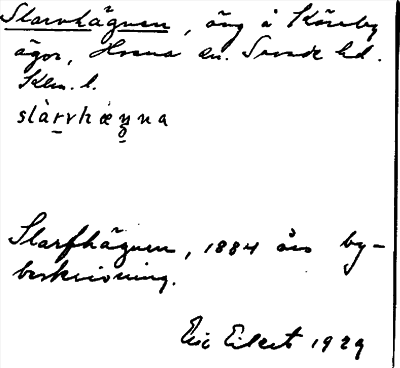 Slarvhägnen, äng å Köreby
ägor, Hossna sn. Sunds hd.
Klm. l.
slàrvhæŋna
Slarfhägnen, 1884 års by-
beskrivning.
Eric Eilert 1929